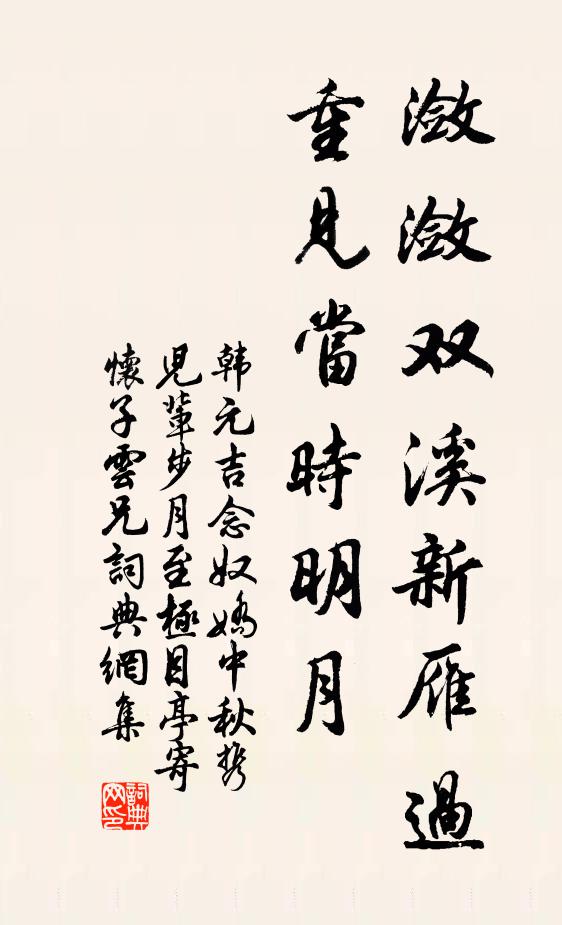 瀲瀲双溪新雁過
重見當時明月
韩元吉念奴嬌中秋携
児輩步月至極目亭寄
懷子雲兄詞典網集
詞典
网印